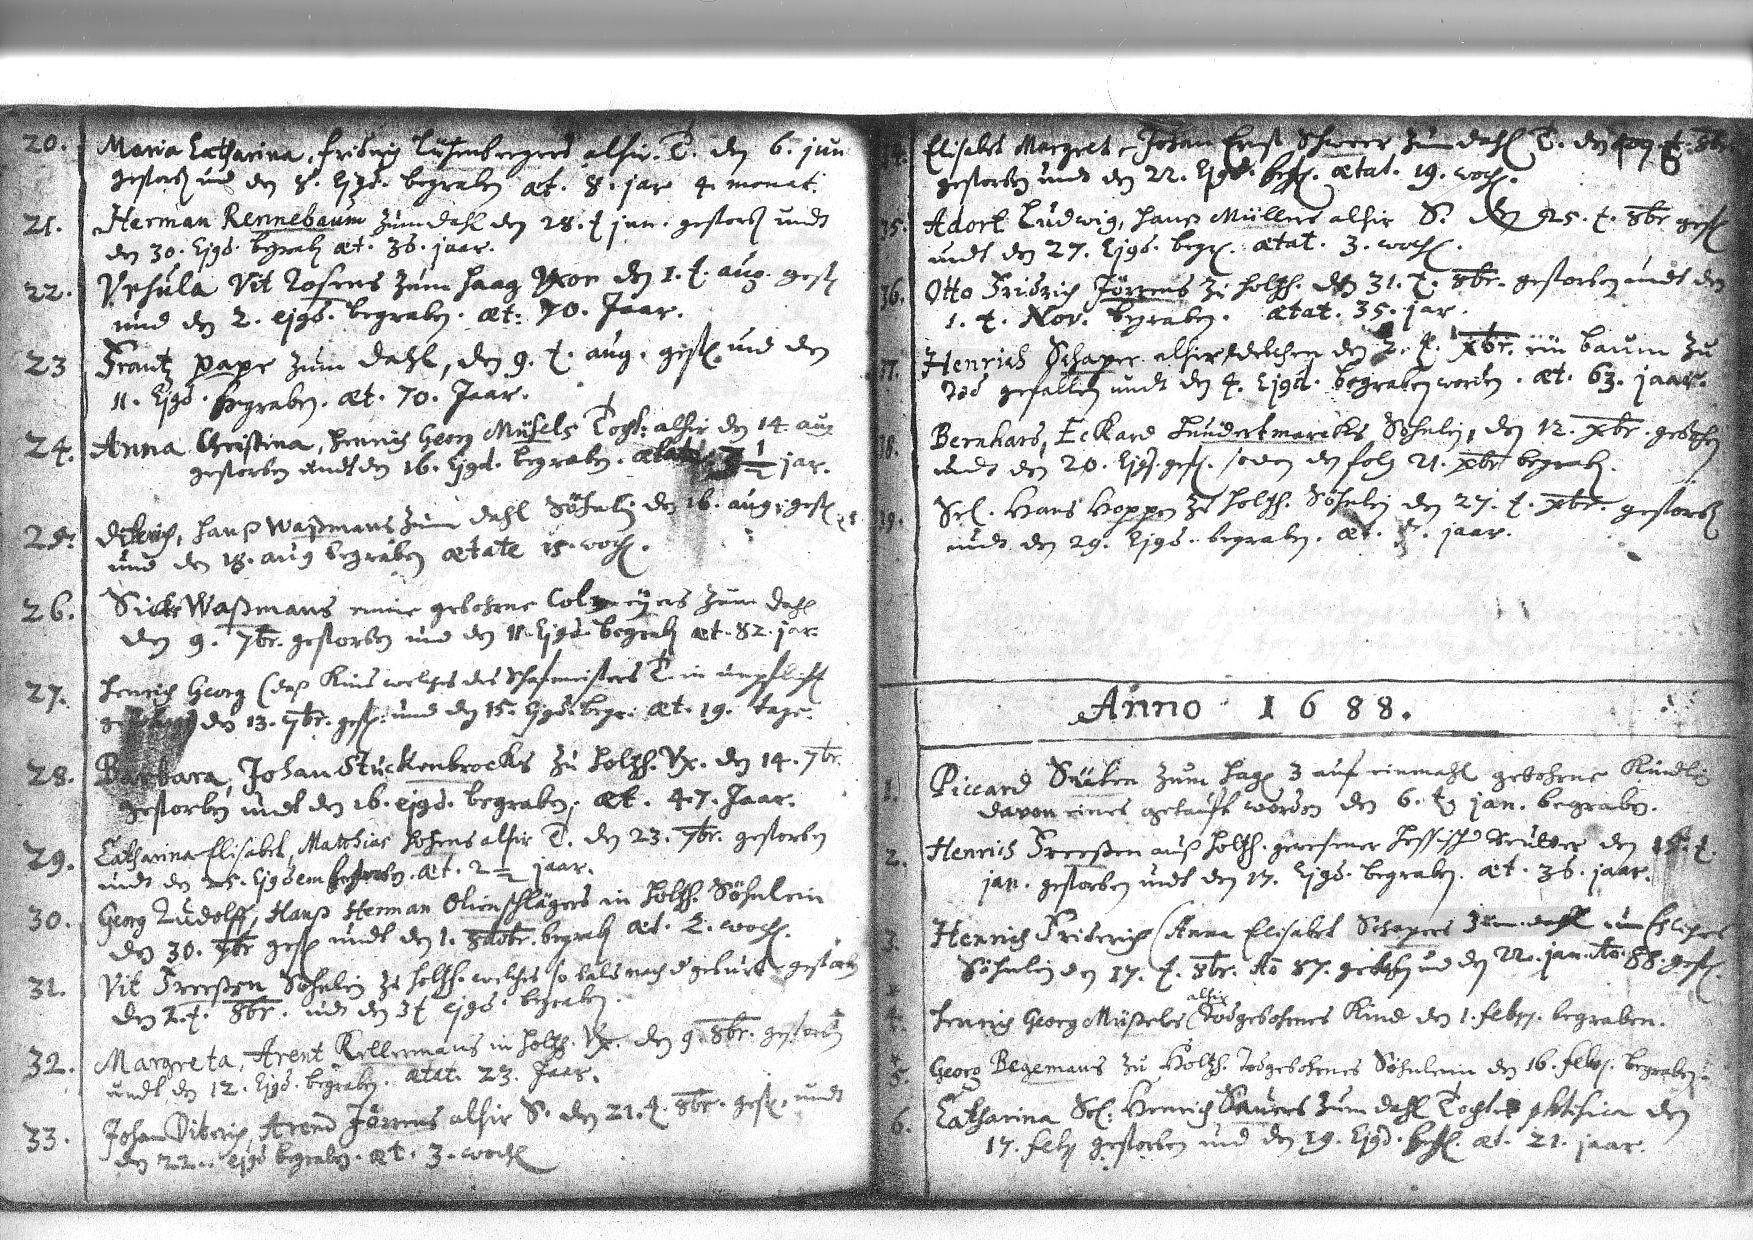 20. Maria Catharina, Fridrich alhir. T. den 6. jun
gestorben und den 8. Ejqd. begraben æt. 8. jar 4. monat.
21. Herman Rennebaum zum dahl den 28. t jun. gestorben undt
den 30. Ejqd. begraben æt. 36. jaar.
22. Ursula Vit Rosens zum Haag Uxor den 1. t. aug. gest
und den 2. ejqd. begraben. æt. 70. Jaar.
23 Frantz Pape zum dahl, den 9. t. aug. gest. und den
11. Ejqd. begraben. æt. 70. Jaar.
24. Anna Christina, Henrich Georg Müsels Tocht. alhir den 14 aug
gestorben undt den 16. Ejqd. begraben. ætat. ½ jar.
25. Diterich, Hanß Waßmans zum dahl Söhnlein den 16. aug. gest
und den 18. aug begraben ætate 15. woch.
26. Waßmans eine gebohrne zum dahl
den 9. 7br. gestorben und den 11. Ejqd. begraben æt. 82. jar.
27. Henrich Georg (daß Kind welches des Schafmeisters T. in unpflicht
den 13. 7br. gest. und den 15. Ejqd. begr. æt. 19. tage.
28. Barbara, Johan Stuckenbrocks zu Holtzh. Ux. den 14. 7br.
gestorben undt den 16. ejqd. begraben. æt. 47. Jaar.
29. Catharina Elisabet, Matthias alhir T. den 23. 7br. gestorben
undt den 25. Ejqdem begraben. æt. 2 ½ jaar.
30. Georg Rudolff, Hanß Herman Olienschlägers in Holtzh. Söhnlein
den 30. 7br gest undt den 1. 8tobr. begraben æt. 2. woch.
31. Vit Freeßen Söhnlein zu Holtzh. welches so bald nach d geburt gestorben
den 2. t. 8br. undt den 3 t ejqd. begraben.
32. Margreta, Arent Kellermans in Holtzh. Ux. den 9. 8br. gestorben
undt den 12. Ejqd. begraben. ætat. 23. Jaar.
33. Johan Diterich, Arend Jörrens alhir S. den 21. t. 8br. gest. undt
den 22. ejqd begraben. æt. 3. woch
34. Elisabet Margret, Johan Ernst zum dahl T. den t. 8br.
gestorben undt den 22. Ejqd. ætat. 19. woch.
35. Adorf Ludwig, Hanß Müllers alhir S. den 25. t. 8br gest
undt den 27. Ejqd. begr. ætat. 3. woch.
36. Otto Fridrich Jörrens zu Holtzh. den 31. t. 8br. gestorben undt den
1. t. Nov. begraben. ætat. 35. jar.
37. Henrich Schaper alhir welchen den 2. t. xbr. ein baum zu
tod gefallen undt den 4. Ejqd. begraben worden. æt. 63. jaar.
38. Bernhard, Eckard Hundertmarcks Söhnlein, den 12. xbr. gebohren
undt den 20. Ejqd. gest. so den folg 21. xbr begrab.
39. Sel. Hans Hoppen zu Holtzh. Söhnlein den 27. t. xbr. gestorben
undt den 29. Ejqd. begraben. æt. jaar.
Anno 1688.
1. Piccard zum Hage 3 auf einmahl gebohrne Kindlein
davon eines getauft worden den 6. t. jan. begraben.
2. Henrich Freeßen auß Holtzh. gewesener Hessischer Reutter den t.
jan. gestorben undt den 17. Ejqd. begraben. æt. 36. jaar.
3. Henrich Friderich (Anna Elisabet Schapers zum dahl un Ehliches
Söhnlein den 17. t. 8br. Ao 87. gebohren und den 22. jan. Ao 88. gest.
alhir
4. Henrich Georg Müßels Todgebohrnes Kind den 1. febr. begraben.
5. Georg Begemans zu Holtzh. Todgebohrnes Söhnlein den 16. febr. begraben.
6. Catharina Sel. Henrich zum dahl Tochter phtisica den
17. febr gestorben und den 19. Ejqd. æt. 21. jaar.